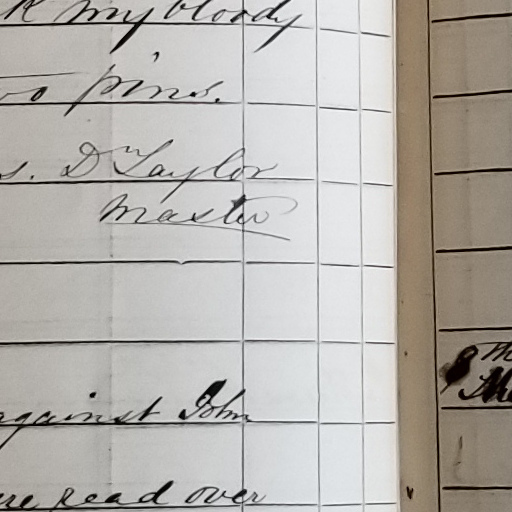 my bloody
pins.
D Taylor
Master
against John
read over
th